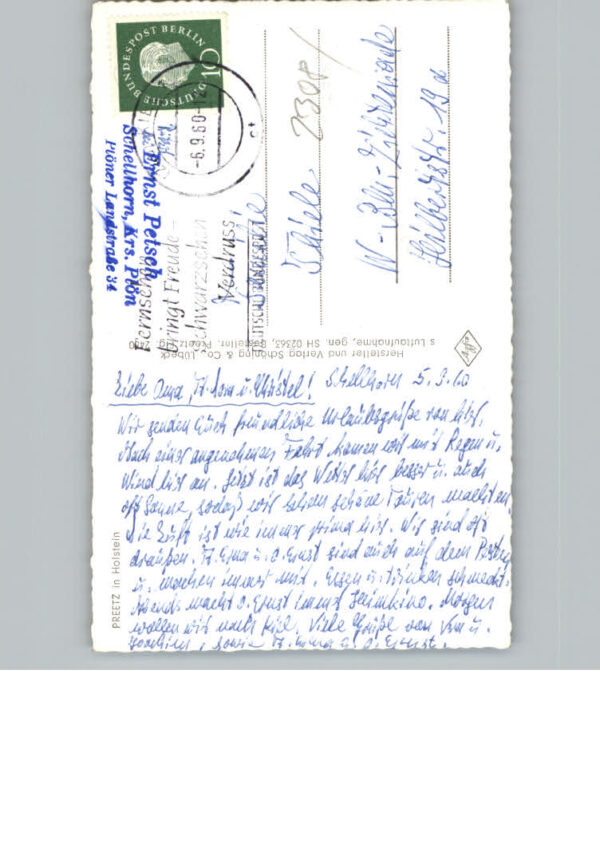 DEUTSCHE BUNDESPOST BERLIN
10
-6.9.60-
Ernst Petsch
Schellhorn, Krs. Plön
Plöner Landstraße 34
Fernsehen
bringt Freude-
Schwarzsehen
Verdruss!
DEUTSCHE BUNDESPOST
2308/
Familie
Thiele
W-Bln-
19a
Hersteller und Verlag Schöning & Co., Lübeck
s Luftaufnahme, gen. SH 02363, Bestellnr. Preetz
Agfa
PREETZ in Holstein
Liebe Oma, u. Christel! Schellhorn 5.9.60
Wir senden Euch freundliche Urlaubsgrüße von hier.
Nach einer angenehmen Fahrt kamen wir mit Regen u.
Wind hier an. Jetzt ist das Wetter hier besser u. auch
oft Sonne, sodaß wir schon schöne Touren machten.
Die Luft ist wie immer prima hier. Wir sind oft
draußen. T. Erna u. O. Ernst sind auch auf dem
u. machen immer mit. Essen u. trinken schmeckt.
Abends macht O. Ernst immer Heimkino. Morgen
wollen wir nach Kiel. Viele Grüße von u.
Joachim, sowie T. Erna u. O. Ernst.